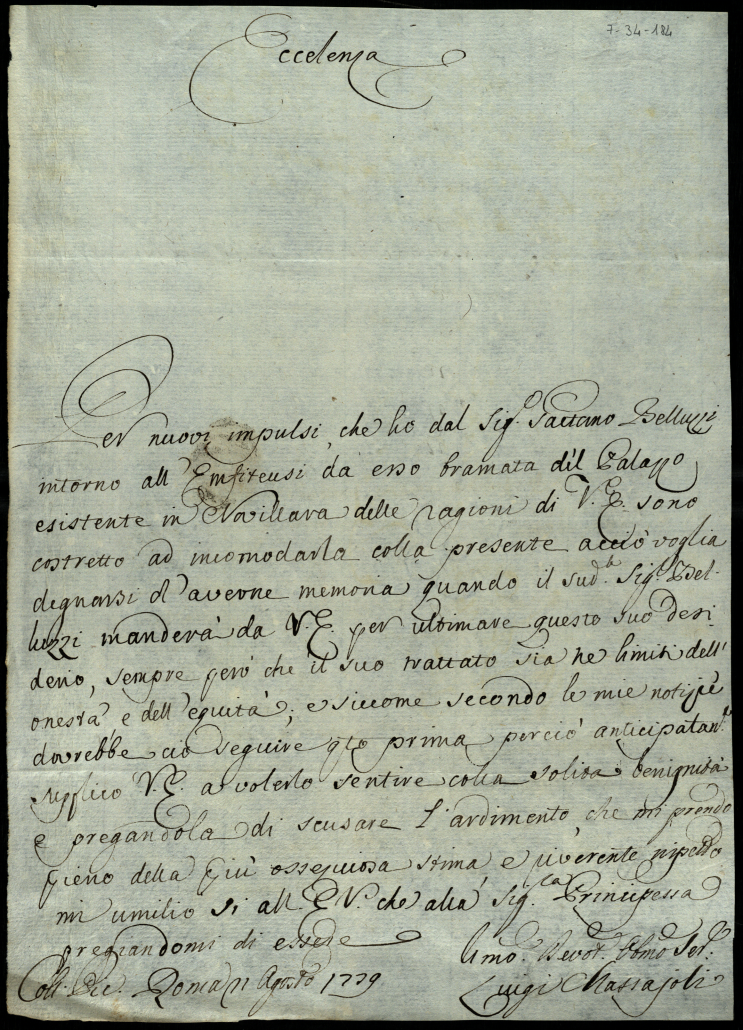 7-34-184
Eccelenza
Per nuovi impulsi, che ho dal Sig.r Gaetano Belluzzi
intorno all'Enfiteusi da esso bramata del Palazzo
esistente in Novillara delle ragioni di V.E. sono
costretto ad incomodarla colla presente acciò voglia
degnarsi d'averne memoria quando il sud.o Sig.r Bel-
luzzi manderà da V.E. per ultimare questo suo desi-
derio, sempre però che il suo trattato sia ne limiti dell'
onestà e dell'equità; e siccome secondo le mie notizie
dovrebbe ciò seguire q.to prima perciò anticipatam.te
supplico V.E. a volerlo sentire colla solita benignità
e pregandola di scusare l'ardimento che mi prendo
pieno della più ossequiosa stima, e riverente rispetto
mi umilio si all'E.V. che alla Sig.ra Principessa
pregiandomi di essere
Roma 11 Agosto 1779
Umo. Devot. Obmo Ser.
Luigi Massajoli